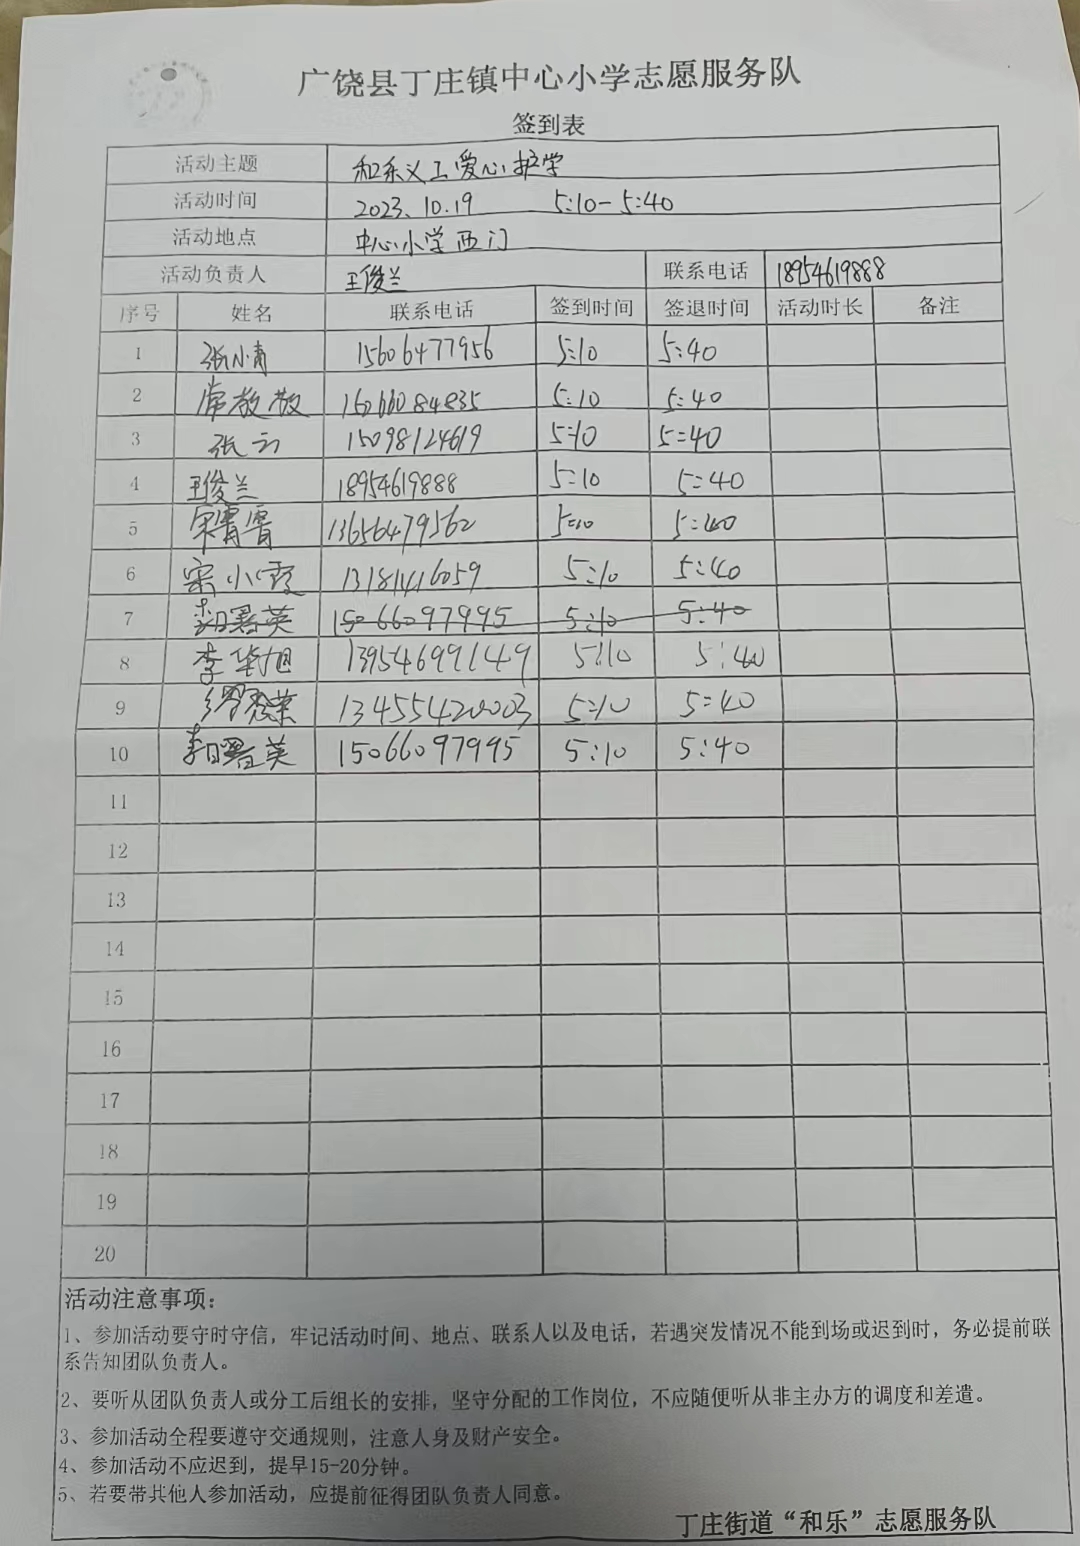 广饶县丁庄镇中心小学志愿服务队
签到表
活动主题 和乐义工爱心护学
活动时间 2023.10.19 5:10-5:40
活动地点 中心小学西门
活动负责人 王俊兰 联系电话 18954619888
序号 姓名 联系电话 签到时间 签退时间 活动时长 备注
1 张小青 15606477956 5:10 5:40
2 常敬敬 15266084835 5:10 5:40
3 张云 15098124619 5:10 5:40
4 王俊兰 18954619888 5:10 5:40
5 宋霄霄 13656479562 5:10 5:40
6 宋小霞 13181416059 5:10 5:40
7 李曙英 15066097995 5:10 5:40
8 李华旭 13954699149 5:10 5:40
9 13455420003 5:10 5:40
10 李曙英 15066097995 5:10 5:40
11
12
13
14
15
16
17
18
19
20
活动注意事项:
1、参加活动要守时守信，牢记活动时间、地点、联系人以及电话，若遇突发情况不能到场或迟到时，务必提前联
系告知团队负责人。
2、要听从团队负责人或分工后组长的安排，坚守分配的工作岗位，不应随便听从非主办方的调度和差遣。
3、参加活动全程要遵守交通规则，注意人身及财产安全。
4、参加活动不应迟到，提早15-20分钟。
5、若要带其他人参加活动，应提前征得团队负责人同意。
丁庄街道“和乐”志愿服务队